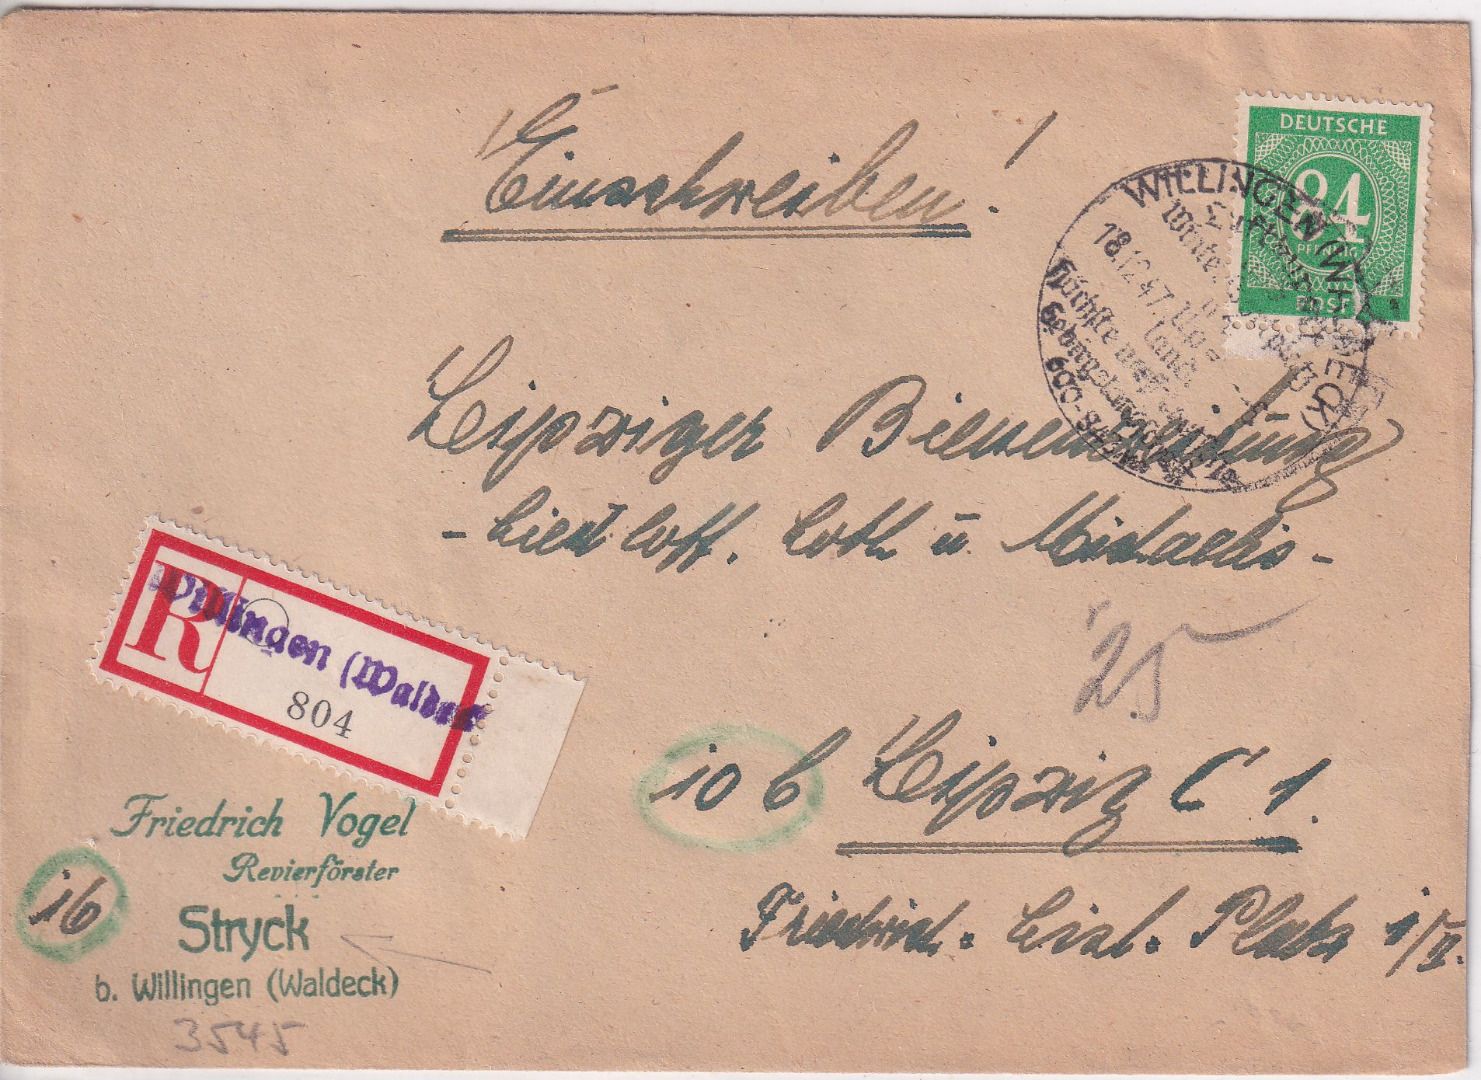 Einschreiben!
DEUTSCHE
84
PFENNIG
POST
WILLINGEN (WALDECK)
18.12.47
Höchste
600-843
Leipziger Bienenzeitung
- Liedloff. Loth u. Michaelis -
25
R
Willingen (Waldeck
804
10 b Leipzig C 1.
Friedrich. List. Platz 1/II.
Friedrich Vogel
Revierförster
16
Stryck
b. Willingen (Waldeck)
3545